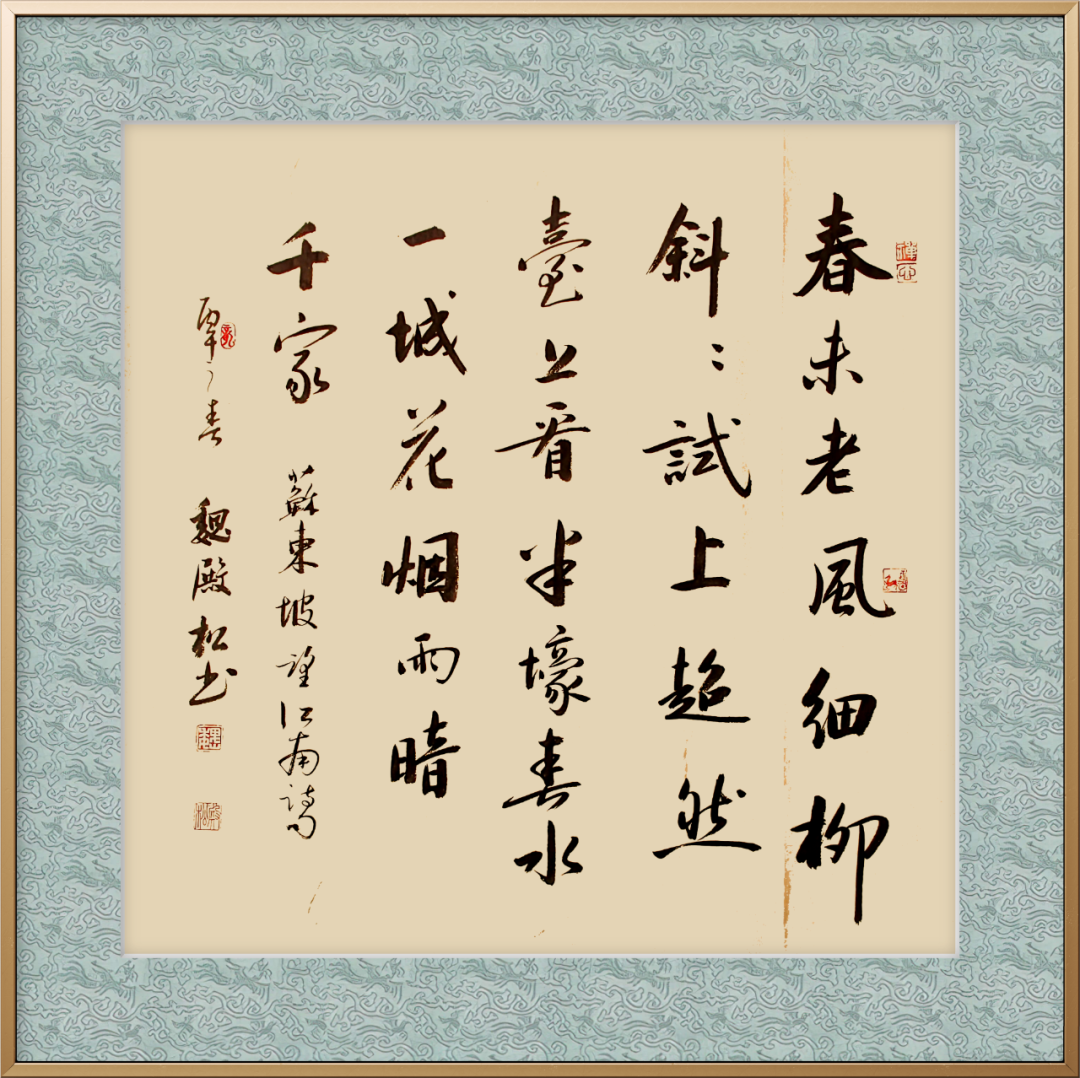 春未老風細柳
斜〻試上超然
臺上看半壕春水
一城花烟雨暗
千家 蘇東坡望江南詩
之春 魏殿松书